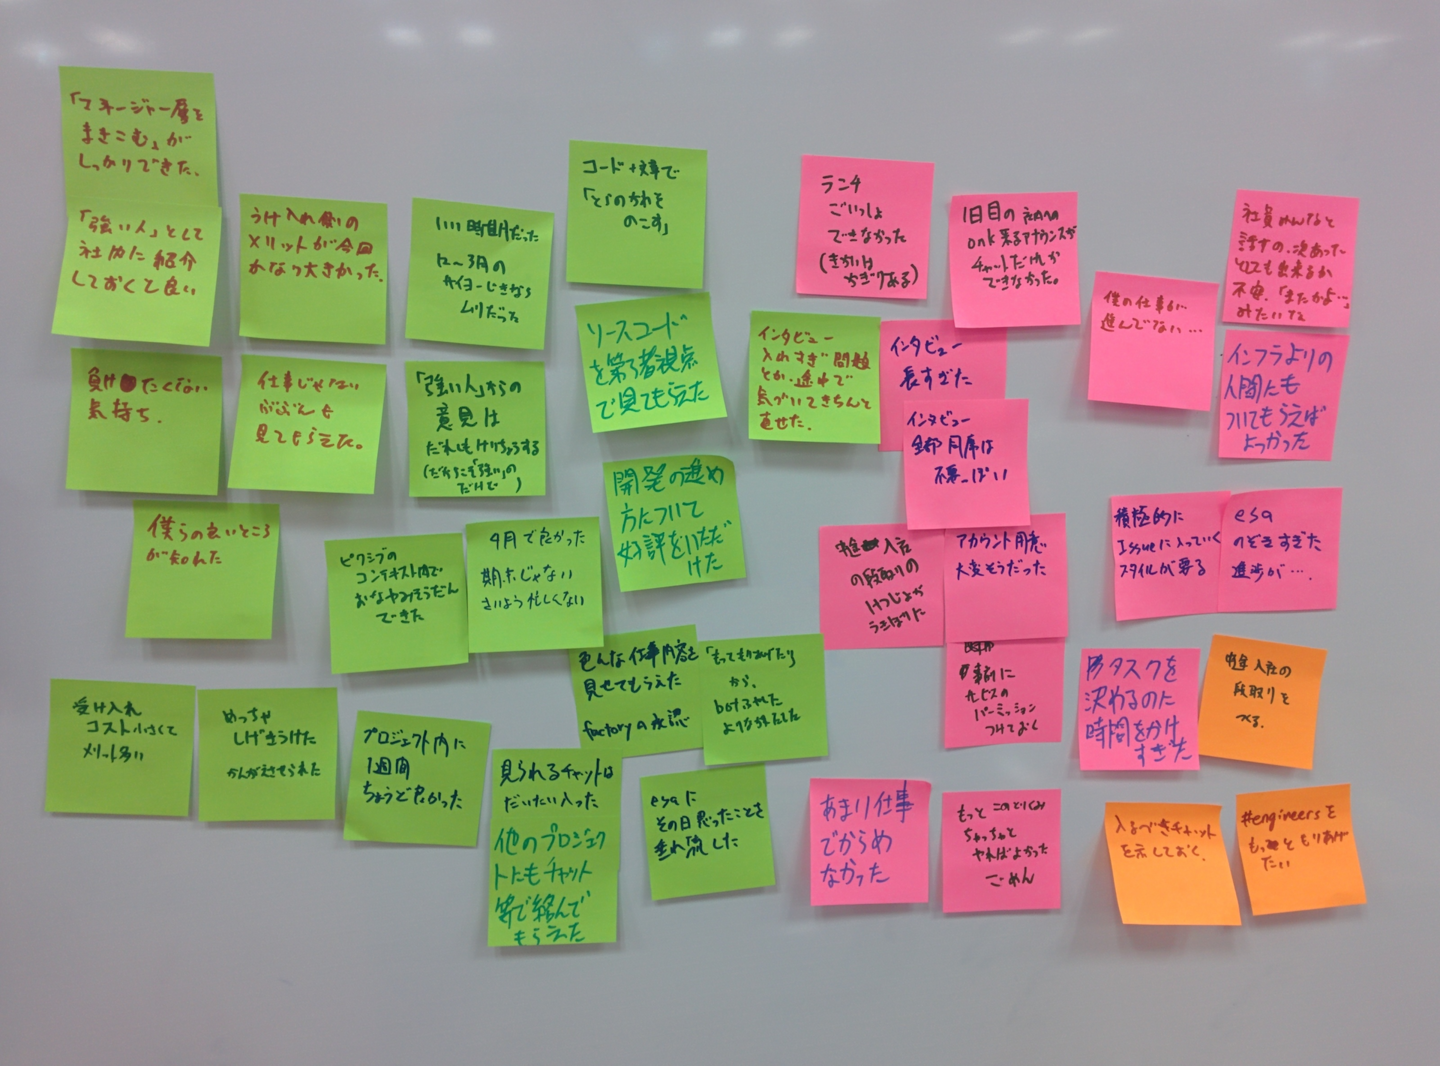 「マネージャー層を
まきこむ」が
しっかりできた.
「強い人」として
社内に紹介
しておくと良い
うけ入れ側の
メリットが今回
かなり大きかった.
いい時期だった
12〜3月の
ムリだった
コード+文章で
「とらのあなを
のこす」
ランチ
ごいっしょ
できなかった
(きかいは
かぎりある)
1日目の社内への
onk来るアナウンスが
チャットだけしか
できなかった。
僕の仕事が
進んでない…
社員みんなと
話すの、次あった
としても出来るか
不安.「またかよ…」
みたいな
負けたくない
気持ち.
仕事じゃない
ぶぶんも
見てもらえた。
「強い人」からの
意見は
だれもけいちょうする
だけで)
ソースコード
を第3者視点
で見てもらえた
インタビュー
入れすぎ問題
とか、途中で
気づいてきちんと
直せた.
インタビュー
長すぎた
インタビュー
全部同席は
不要っぽい
インフラよりの
人間にも
ついてもらえば
よかった
僕らの良いところ
が知れた
ピクシブの
コンテキスト内で
おなやみそうだん
できた
4月で良かった
期末じゃない
さいよう忙しくない
開発の進め
方について
好評をいただ
けた
入社
の段取りの
けつじょが
うきぼりに
アカウント用意
大変そうだった
積極的に
Issueに入っていく
スタイルが要る
esa
のぞきすぎた
進捗が…
受け入れ
コスト小さくて
メリット多い
めっちゃ
しげきうけた
かんがえさせられた
プロジェクト内に
1週間
ちょうど良かった
色んな仕事内容を
見せてもらえた
factoryの承認
「もってもりあげたい」
から、
事前に
サービスの
パーミッション
つけておく
タスクを
決めるのに
時間をかけ
すぎた
入社の
段取りを
べる.
見られるチャットは
だいたい入った
他のプロジェク
トにもチャット
等で絡んで
もらえた
esaに
その日思ったことを
垂れ流した
あまり仕事
でからめ
なかった
もっと このとりくみ
ちゃっちゃと
やればよかった
ごめん
入るべきチャット
を示しておく.
#engineersを
もっともりあげ
たい